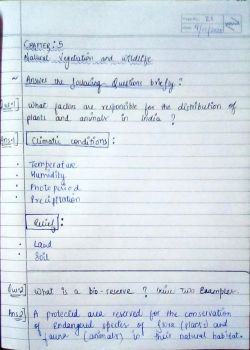 Chapter: 5
Natural Vegetation and wildlife
~ Answer the following questions briefly:
Que-1] What factors are responsible for the distribution of
plants and animals in India?
Ans-1] Climatic conditions:
• Temperature
• Humidity
• Photo period
• Precipitation
Relief:
• Land
• Soil
Que-2] What is a bio-reserve? Give two examples.
Ans2] A protected area reserved for the conservation
of endangered species of flora (plants) and
fauna (animals) in their natural habitat.